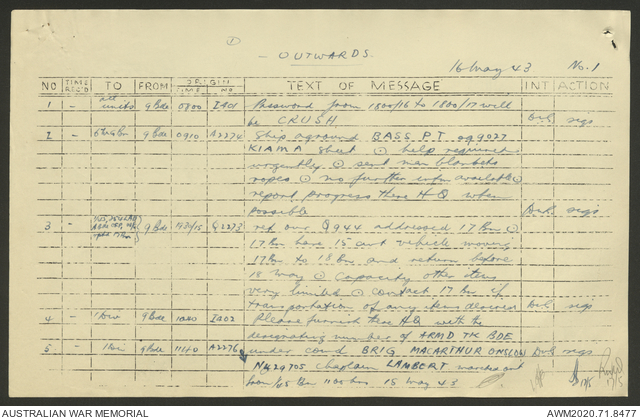 - OUTWARDS.
16 May 43 No. 1
NO TIME REC'D TO FROM ORIGIN TIME NO TEXT OF MESSAGE INT ACTION
1 - all units 9 Bde 0800 I401 Password from 1800/16 to 1800/17 will
be CRUSH sigs
2 - 9 Bde 0910 A2274 Ship aground BASS PT. 099027
KIAMA sheet ⊙ help required
urgently ⊙ send men blankets
ropes ⊙ no further information available ⊙
report progress these HQ when
possible sigs
3 - 9 Bde Q2273 ref our Q944 addressed 17 Bn ⊙
17 Bn have 15 cwt vehicle moving
17 Bn to 18 Bn and return before
18 May ⊙ Capacity other items
very limited ⊙ contact 17 Bn if
transportation of any items desired sigs
4 - 1 Div 9 Bde 1040 I402 Please furnish these HQ with the
designating number of ARMD TK BDE
under comd BRIG MACARTHUR ONSLOW sigs
5 - 1 Div 9 Bde 1140 A2276
Chaplain LAMBERT marched out
Bn 1100 hrs 15 May 43
AUSTRALIAN WAR MEMORIAL AWM2020.71.8477